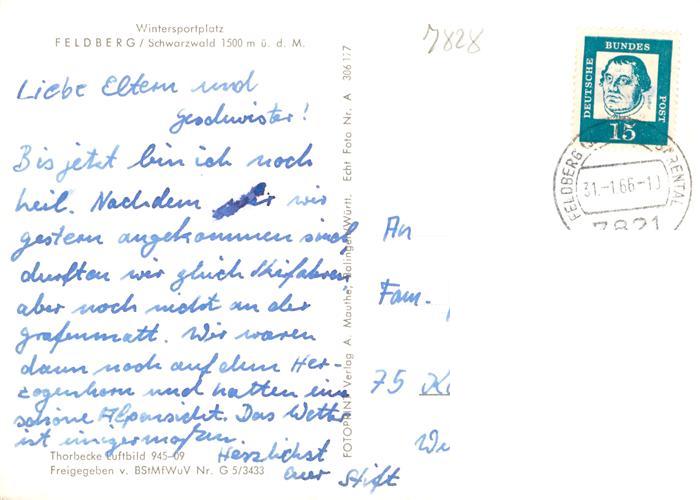 Wintersportplatz
FELDBERG / Schwarzwald 1500 m ü. d. M.
7828
DEUTSCHE BUNDES POST
15
FELDBERG
31.-1.66-10
7821
Liebe Eltern und
Geschwister!
Bis jetzt bin ich noch
heil. Nachdem wir
gestern angekommen sind
durften wir glich Skifahren
aber noch nicht an der
grafenmatt. Wir waren
dann noch auf dem Her-
zogenhorn und hatten eine
schöne Alpensicht. Das Wetter
ist einigermaßen.
Herzlichst
Euer Stift
Thorbecke Luftbild 945-09
Freigegeben v. BStMfWuV Nr. G 5/3433
FOTOPRINT Verlag A. Mauthe, Balingen/Württ. Echt Foto Nr. A 306 117
An
Fam.
75